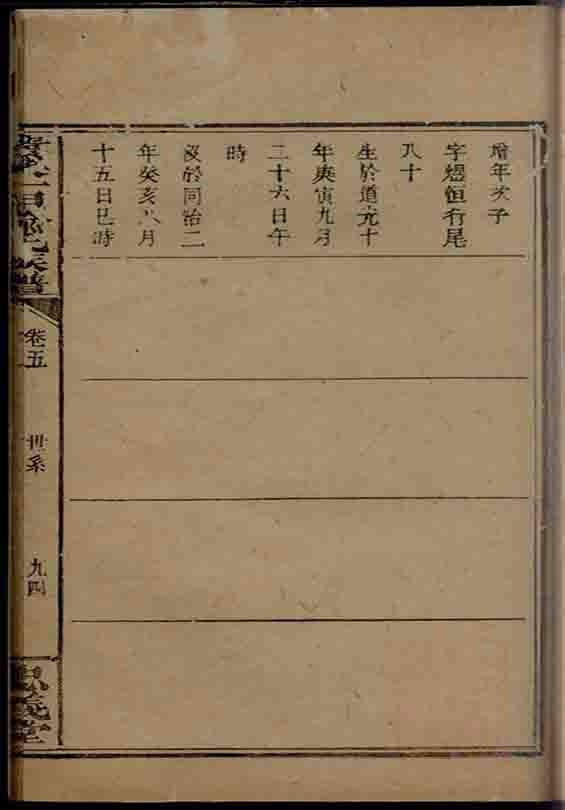 增年次子
字煜恒行尾
八十
生於道光十
年庚寅九月
二十六日午
時
沒於同治二
年癸亥八月
十五日巳時
氏族譜
卷五
世系
九四
堂